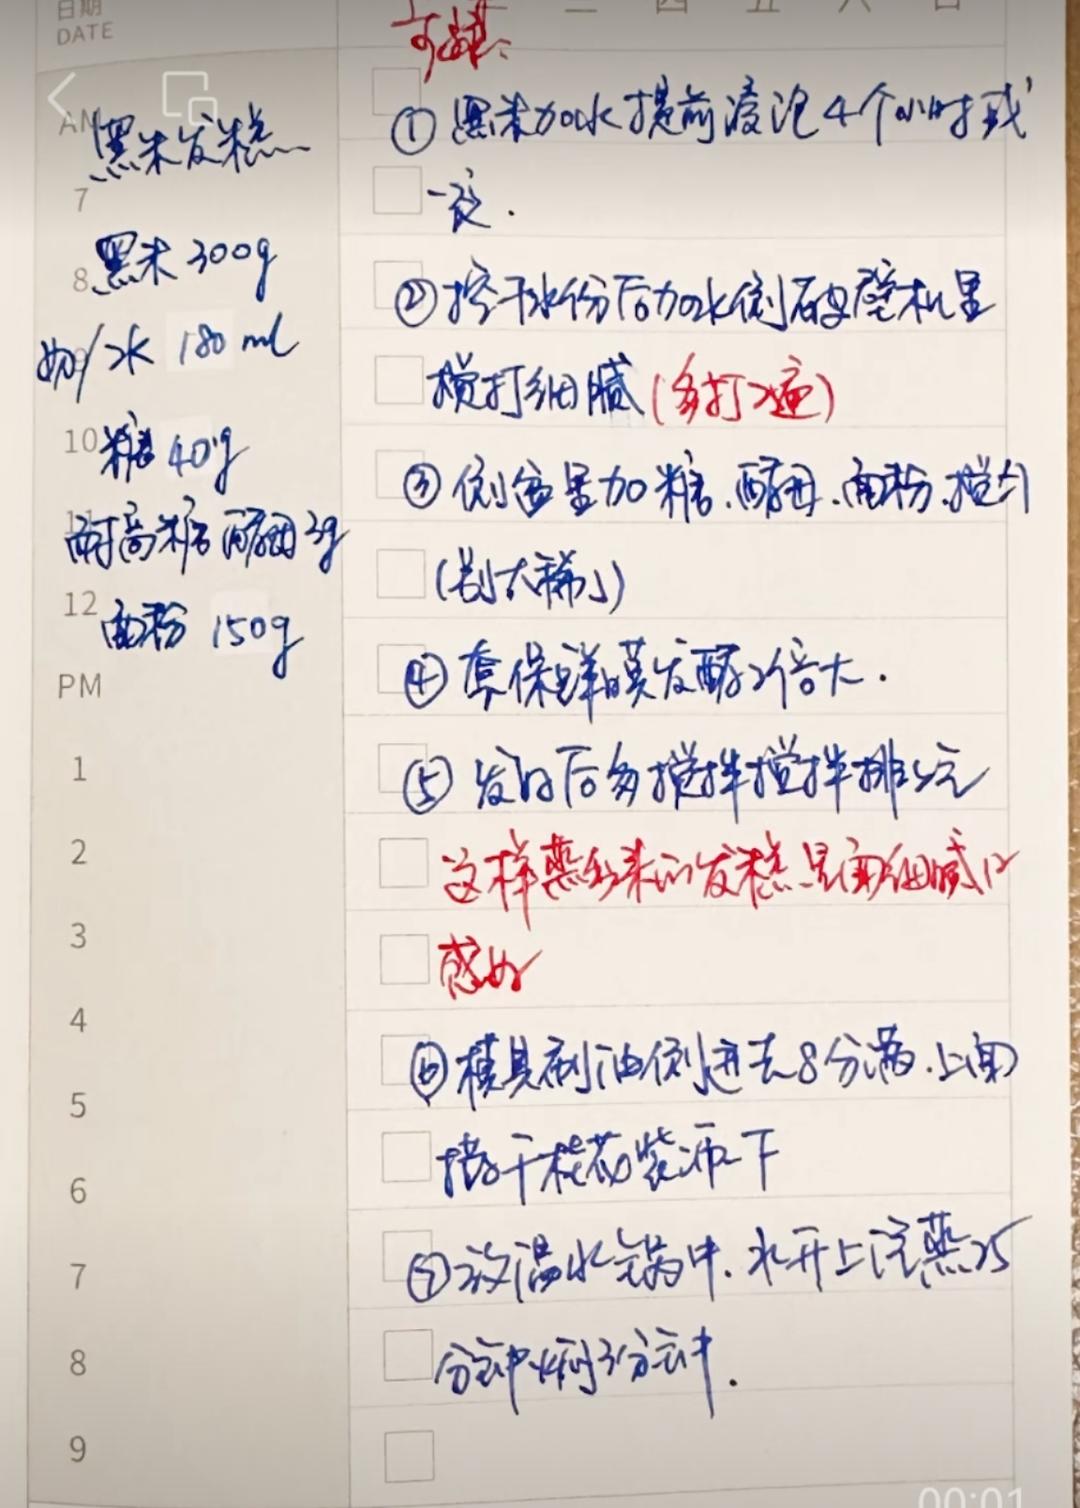 日期
DATE
二 四 五 六 日
步骤:
AM
黑米发糕
7
黑米 300g
8
奶/水 180ml
糖 40g
10
耐高糖酵母 3g
11
面粉 150g
12
PM
1
2
3
4
5
6
7
8
9
① 黑米加水提前浸泡4个小时或
一夜.
② 控干水份后加水倒破壁机里
搅打细腻(多打2遍)
③ 倒盆里加糖.酵母.面粉.搅匀
(别太稀)
④ 套保鲜膜发酵2倍大.
⑤ 发好后多搅拌搅拌排气
这样蒸出来的发糕 细腻口
感好
⑥ 模具刷油倒进去8分满.上面
干桂花装 下
⑦ 放温水锅中.水开上汽蒸25
分钟焖3分钟.
00:01